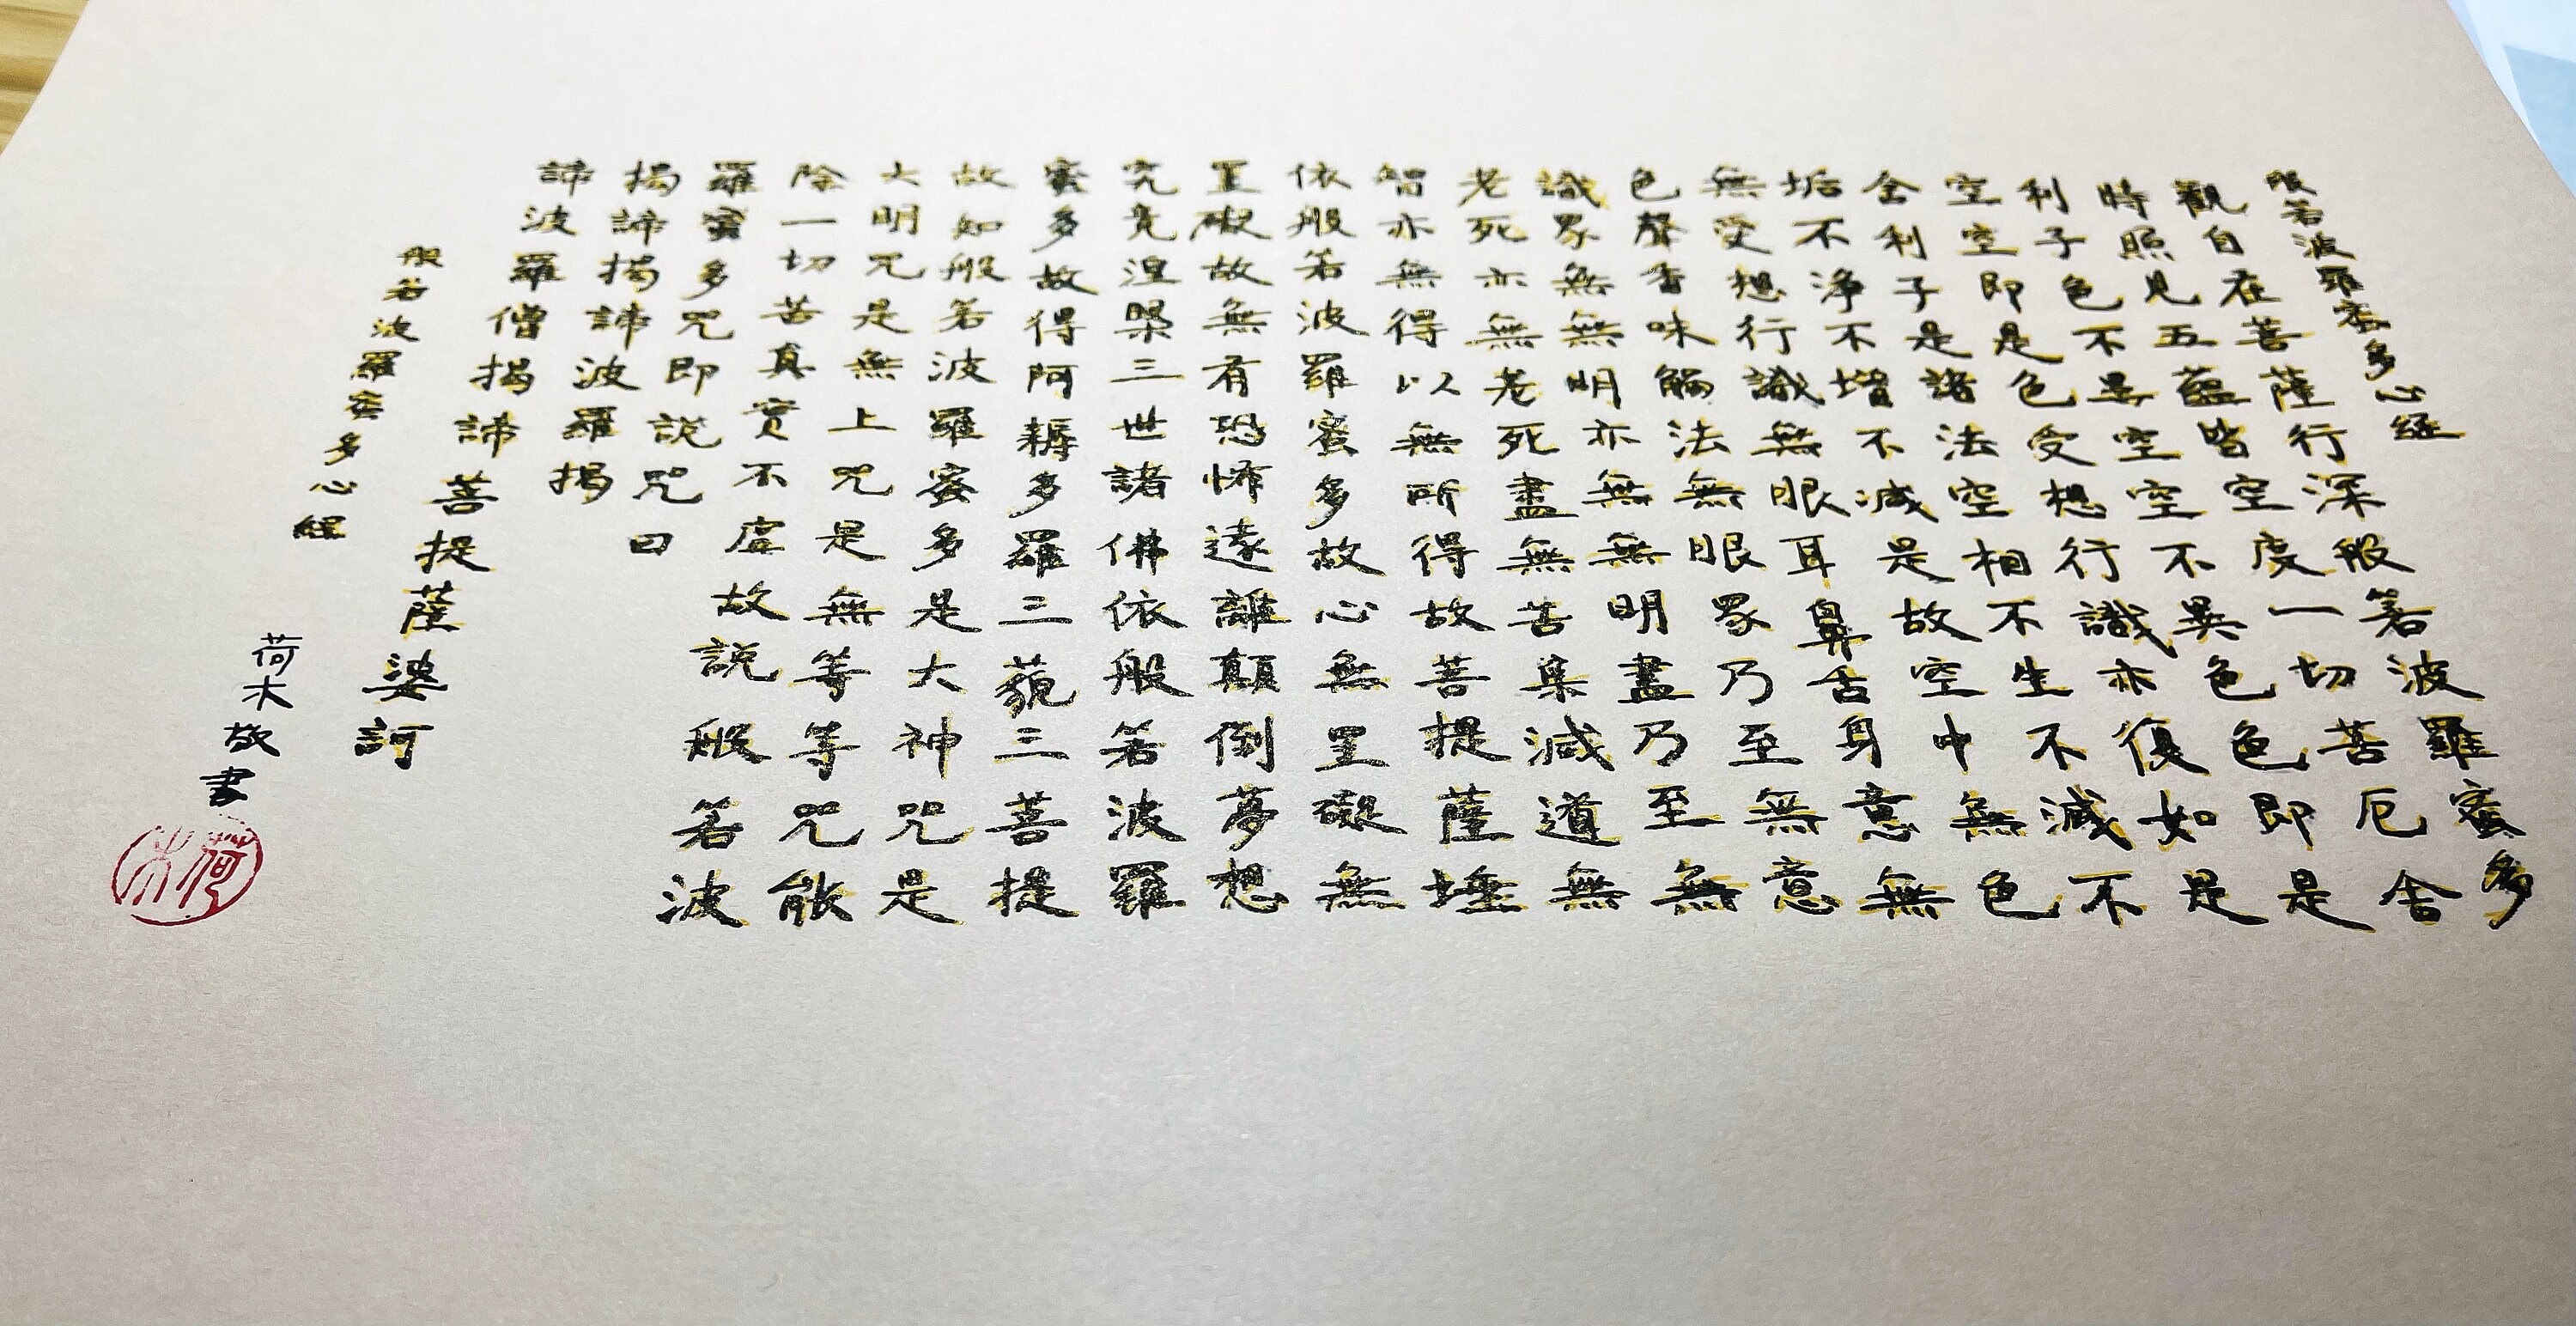 般若波羅蜜多心經
觀自在菩薩行深般若波羅蜜多
時照見五蘊皆空度一切苦厄舍
利子色不異空空不異色色即是
空空即是色受想行識亦復如是
舍利子是諸法空相不生不滅不
垢不淨不增不滅是故空中無色
無受想行識無眼耳鼻舌身意無
色聲香味觸法無眼界乃至無意
識界無無明亦無無明盡乃至無
老死亦無老死盡無苦集滅道無
智亦無得以無所得故菩提薩埵
依般若波羅蜜多故心無罣礙無
罣礙故無有恐怖遠離顛倒夢想
究竟涅槃三世諸佛依般若波羅
蜜多故得阿耨多羅三藐三菩提
故知般若波羅蜜多是大神咒是
大明咒是無上咒是無等等咒能
除一切苦真實不虛故說般若波
羅蜜多咒即說咒曰
揭諦揭諦波羅揭
諦波羅僧揭諦菩提薩婆訶
般若波羅蜜多心經
荷木敬書
荷木